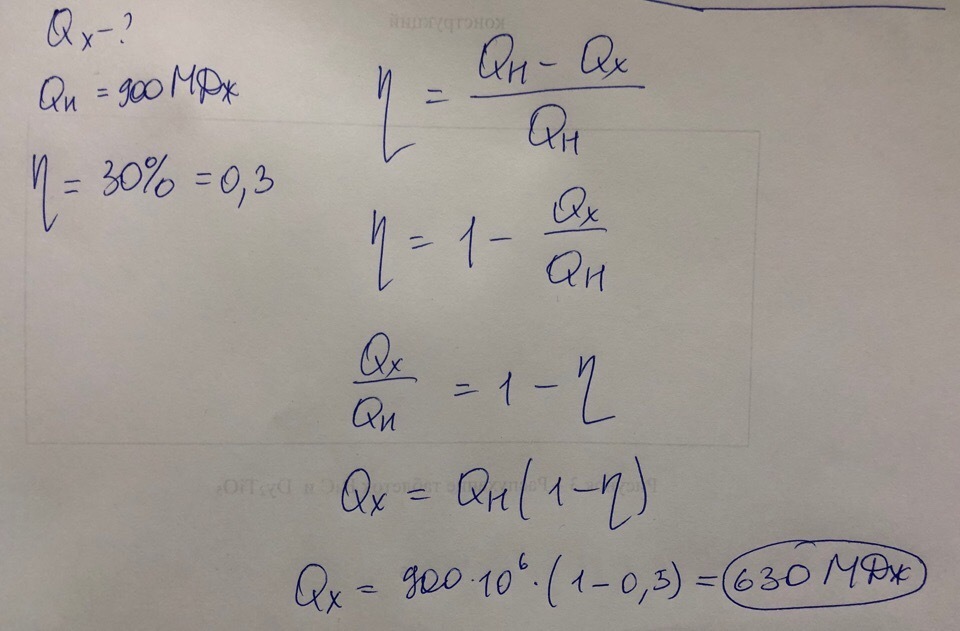 Qx - ?
Qн = 900 МДж
η = 30% = 0,3
η = (Qн - Qx) / Qн
η = 1 - Qx / Qн
Qx / Qн = 1 - η
Qx = Qн (1 - η)
Qx = 900 · 10⁶ · (1 - 0,3) = 630 МДж
конструкций